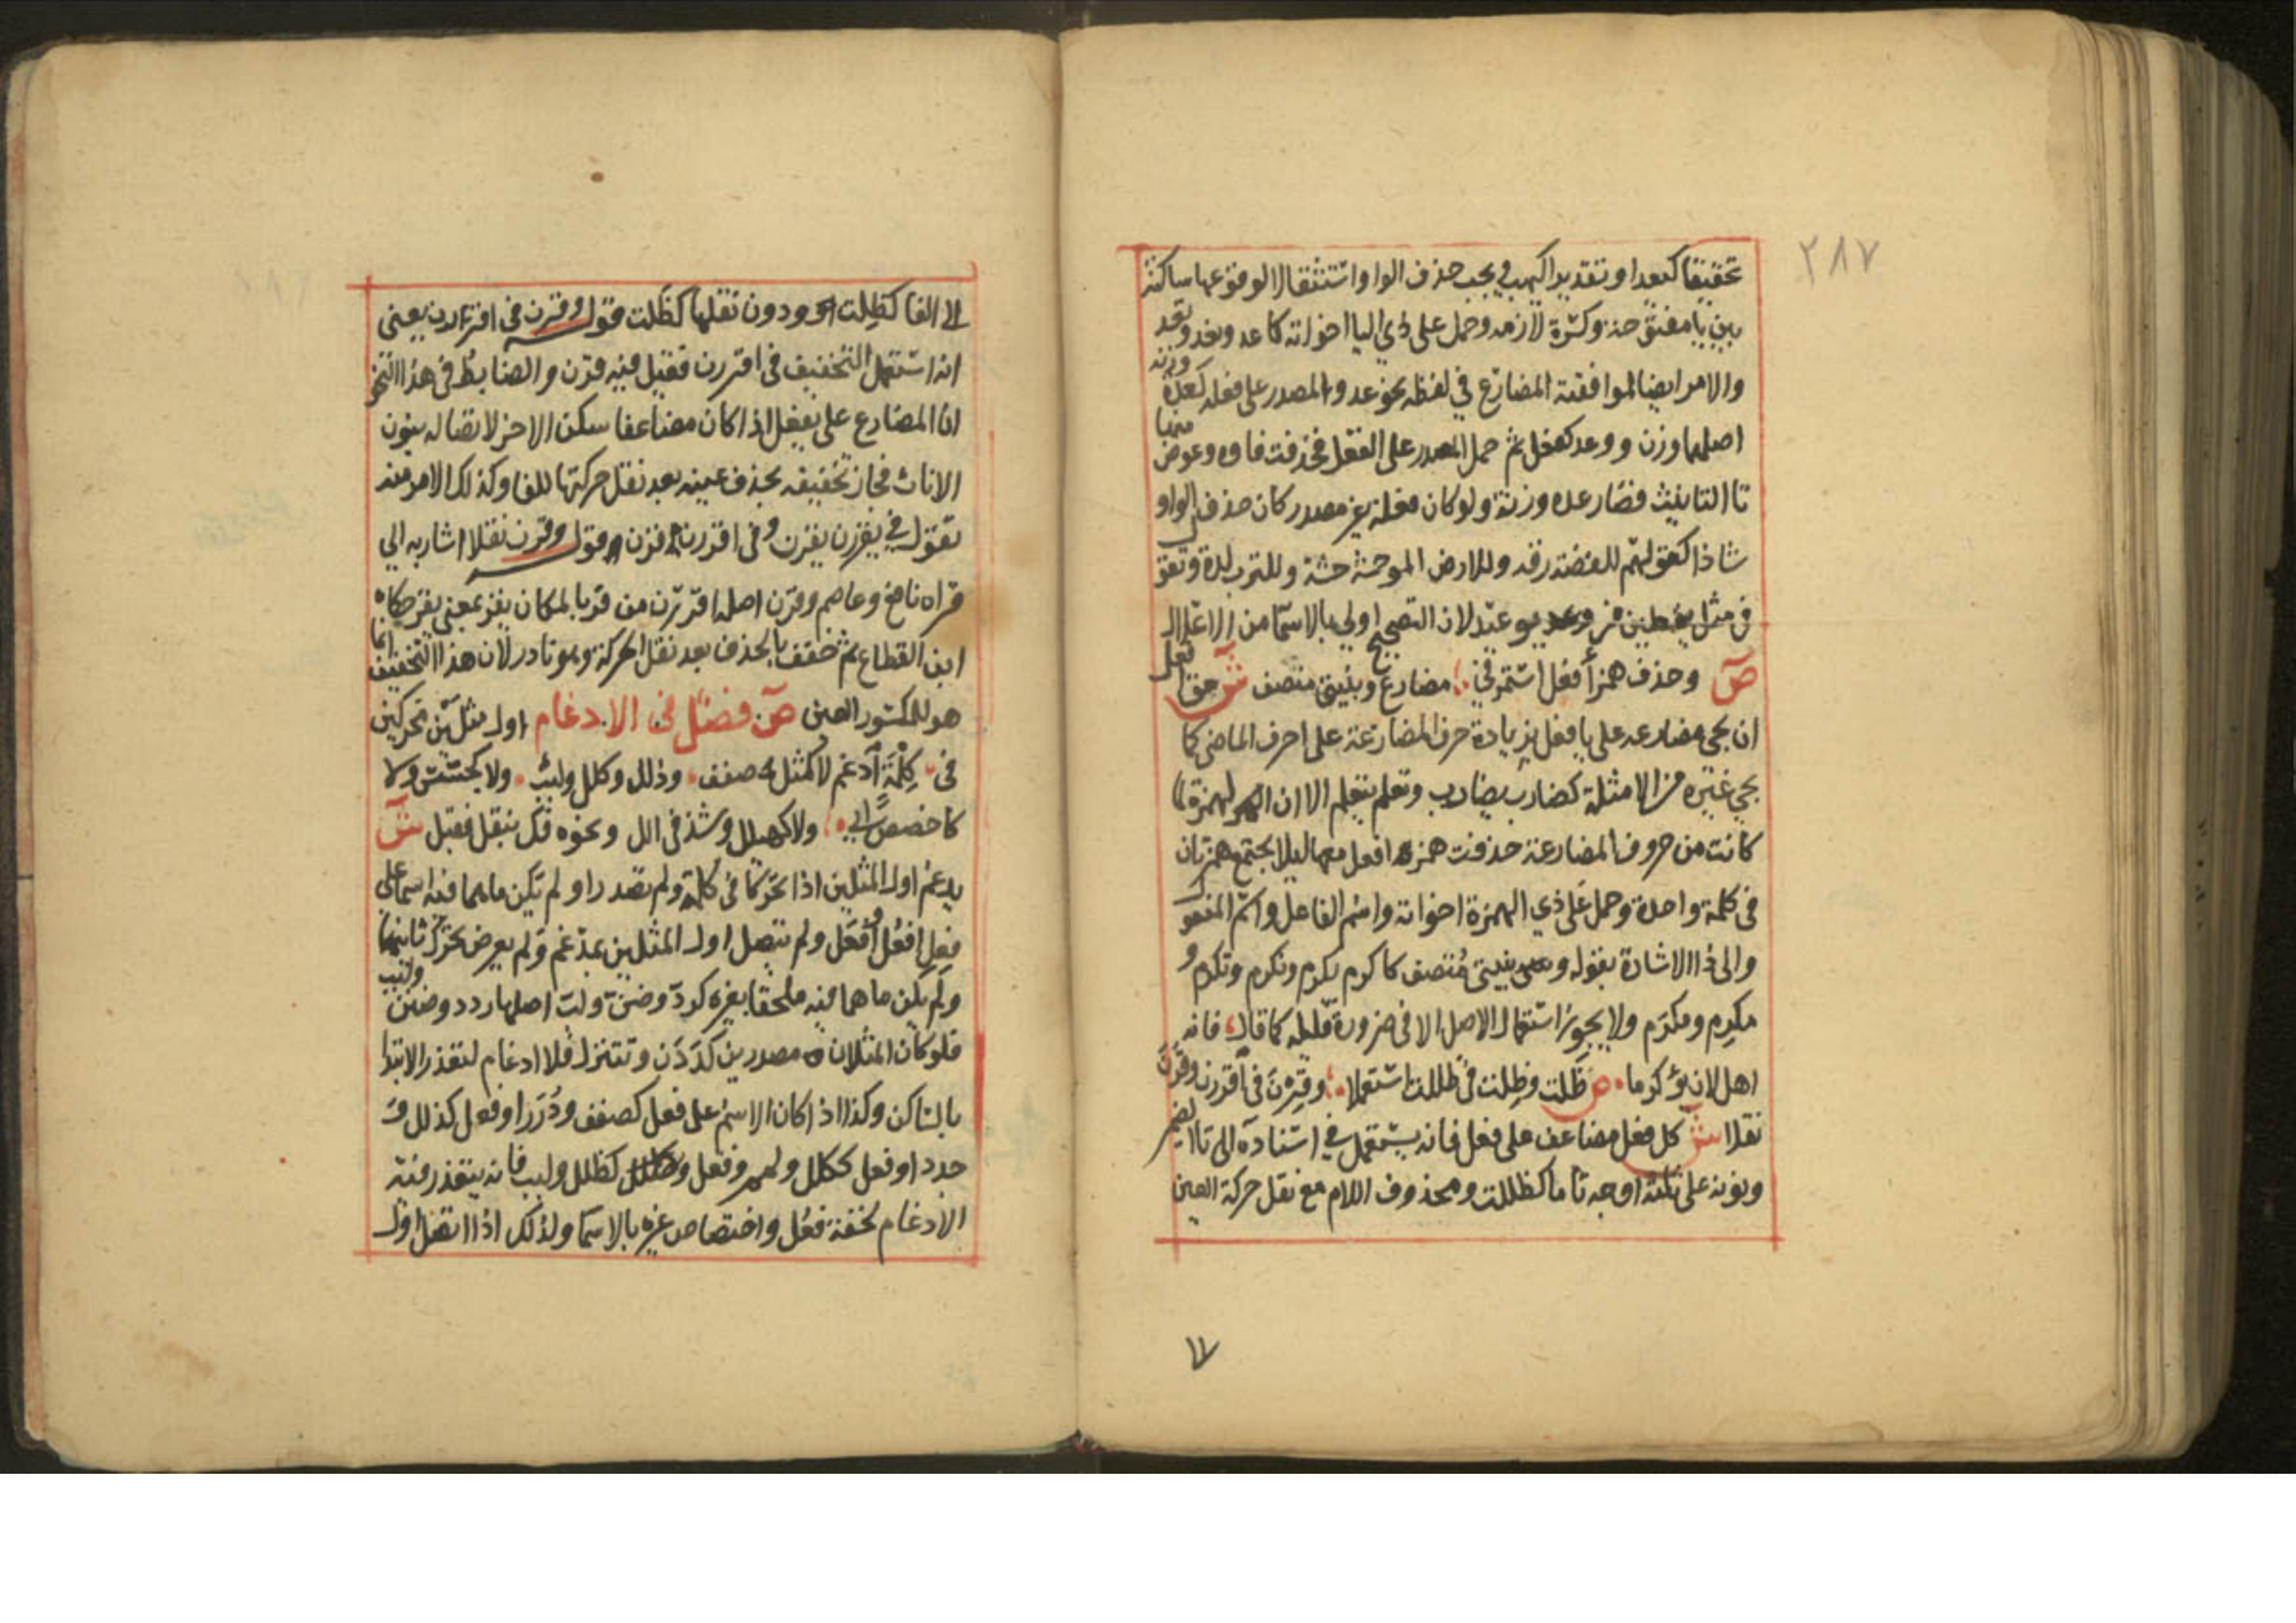 ٢٨٧
تحقيقا كيعدا وتقديرا كيهب في يجب حذف الواو استثقالا لوقوعها ساكنة
بين يا مفتوحة وكسرة لازمه وحمل على ذي اليا اخواته كاعد ونعد وتعد
والامر ايضا لموافقته المضارع في لفظه نحو عد والمصدر على فعله كعدة وزنه
اصلهما وزن ووعد كفعل ثم حمل المصدر على الفعل فحذفت فاوه وعوض منها
تا التانيث فصار عده وزنة ولو كان فعلة غير مصدر كان حذف الواو
شاذا كقولهم للفضة رقه وللارض الموحشة حشة وللترب لدة وتقول
في مثل يقطين من وعد يوعيد لان التصحيح اولى بالاسما من الاعلال
ص وحذف همز أفعل استمر في مضارع وبنيتي متصف ش حق افعل
ان يجي مضارعه على يافعل بزيادة حرف المضارعة على احرف الماضي كما
يجي غيره من الامثلة كضارب يضارب وتعلم يتعلم الا ان الهمزة لما
كانت من حروف المضارعة حذفت همزة افعل معها ليلا يجتمع همزتان
في كلمة واحدة وحمل على ذي الهمزة اخواته واسم الفاعل واسم المفعول
والى ذا الاشارة بقوله وبنيتي مُتصف كاكرم يكرم ونكرم وتكرم و
مكرِم ومكرَم ولا يجوز استعمال الاصل الا في ضرورة قليله كما قال فانه
اهل لان يؤكرما ص ظَلت وظِلت في ظللت استعملا وقِرْنَ في اقررن وقَرْنَ
نقلا ش كل فعل مضاعف على فعل فانه يستعمل في اسناده الى تا الضمير
ونونه على ثلثة اوجه تاما كظللت ومحذوف اللام مع نقل حركة العين
الى الفا كظِلت ودون نقلها كظَلت فقوله وقرن في اقررن يعني
انه استعمل التخفيف في اقررن فقيل فيه قرن والضابط في هذا النحو
ان المضارع على يفعل اذا كان مضاعفا سكن الاخر لاتصاله بنون
الاناث فجاز تخفيفه بحذف عينه بعد نقل حركتها للفا وكذلك الامر منه
تقول في يقررن يقرن وفي اقررن قرن وقوله وقرن نقلا اشار به الى
قراه نافع وعاصم وقرن اصله اقررن من قر بالمكان يقر بمعنى يقر حكاه
ابن القطاع ثم خفف بالحذف بعد نقل الحركة وهو نادر لان هذا التخفيف انما
هو للمكسور العين ص فصل في الادغام اول مثلين محركين
في كِلْمَة ادغم لا كمثل صفف وذلل وكلل ولبب ولا كجسس ولا
كاخصص ابي ولا كهيلل وشذ في الل ونحوه فك بنقل فقبل ش
يدغم اول المثلين اذا تحركا في كلمة ولم يصدرا ولم يكن ما هما فيه اسما على
فعل او فُعُل او فَعَل ولم يتصل اول المثلين بمدغم ولم يعرض تحرك ثانيهما
ولم يكن ما هما فيه ملحقا بغيره كرد وضن ولب اصلها ردد وضنن ولبب
فلو كان المثلان مصدرين كدَدَن وتتنزل فلا ادغام لتعذر الابتدا
بالساكن وكذا اذا كان الاسم على فعل كصفف ودُرَر او فعل كذلل و
جدد او فعل ككلل ولمم وفعل كظلل ولبب فانه يتعذر فيه
الادغام لخفة فعَل واختصاص غيره بالاسما ولذلك اذا اتصل اول